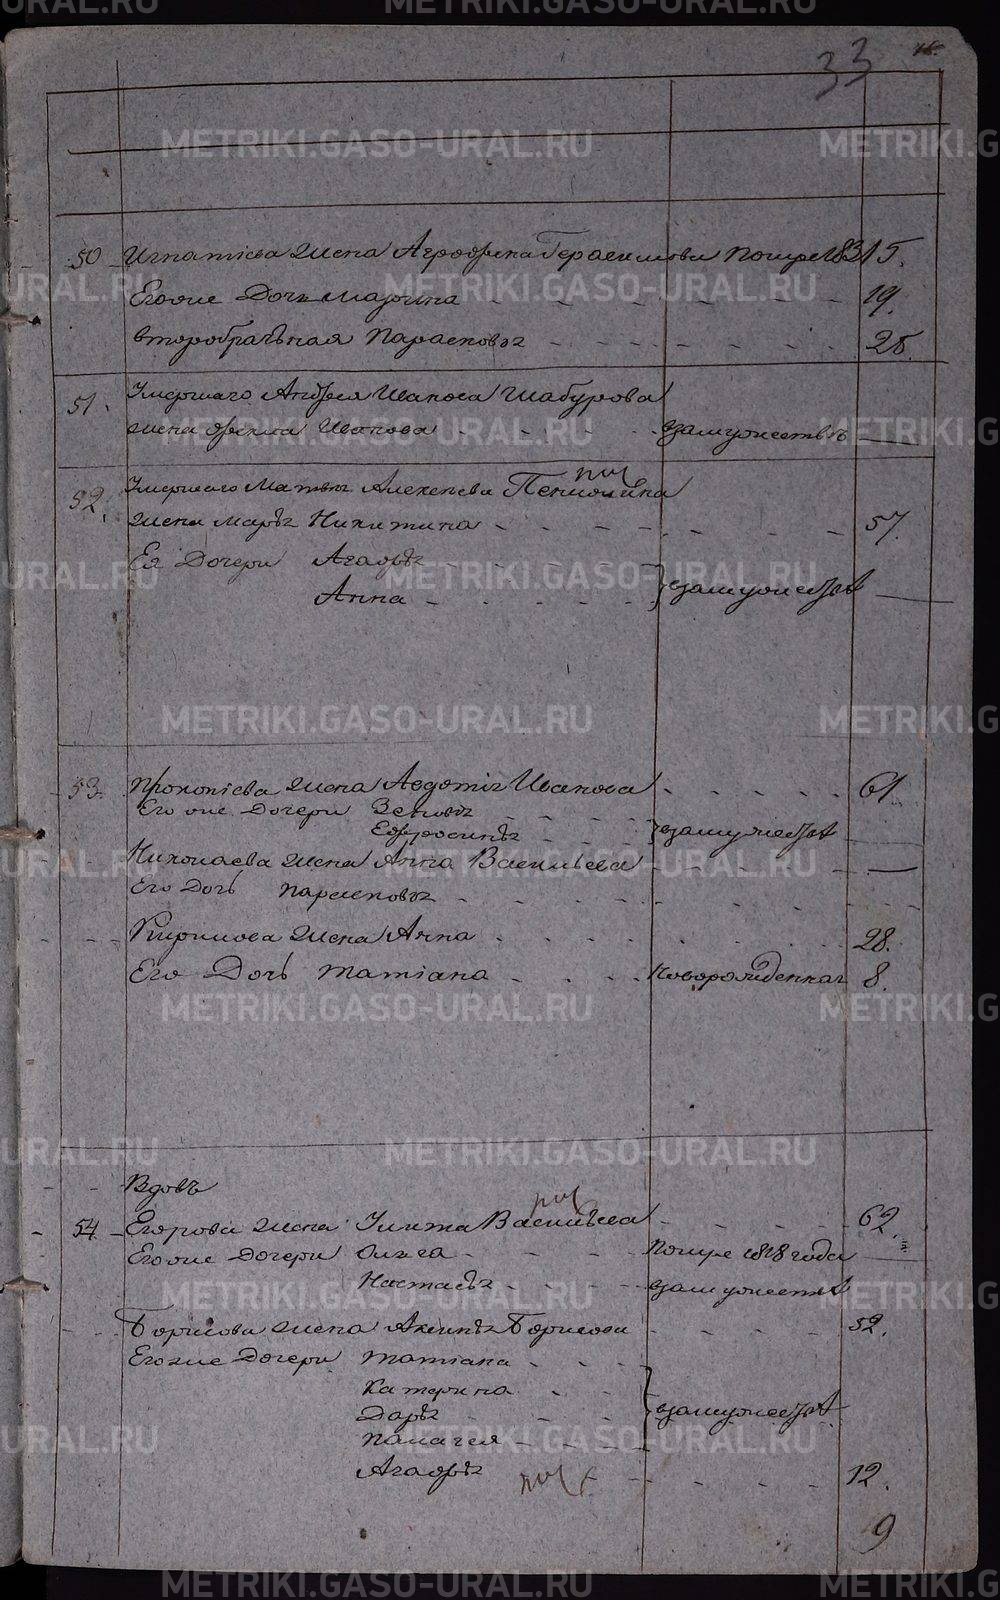 33
50 Игнатіева жена Агрофена Герасимова помре 1831 5.
Егоже Дочь Марина 19.
второбрачьная Парасковья 25.
51. Умершаго Андрея Иванова Шабурова
жена фекла Иванова взамужествѣ
52. Умершаго Матвея Алексѣева
жена Марья Никитина 57.
Ея Дочери Агафья
Анна взамужествѣ
53. Прокопіева жена Авдотья Иванова 61
Его же Дочери Зеновья
Ефросинья взамужествѣ
Николаева жена Анна Васильева
Его Дочь Парасковья
Кирилова жена Анна 28.
Его Дочь Татіана Новорожденная 8.
Вдовъ
54 Егорова жена Улита Васильева 62.
Егоже Дочери Олена помре 1818 года
Настасья взамужествѣ
Борисова жена Аксинья Борисова 52.
Егоже Дочери Татіана
Катерина
Дарья взамужествѣ
Палагея
Агафья 12.
9
METRIKI.GASO-URAL.RU